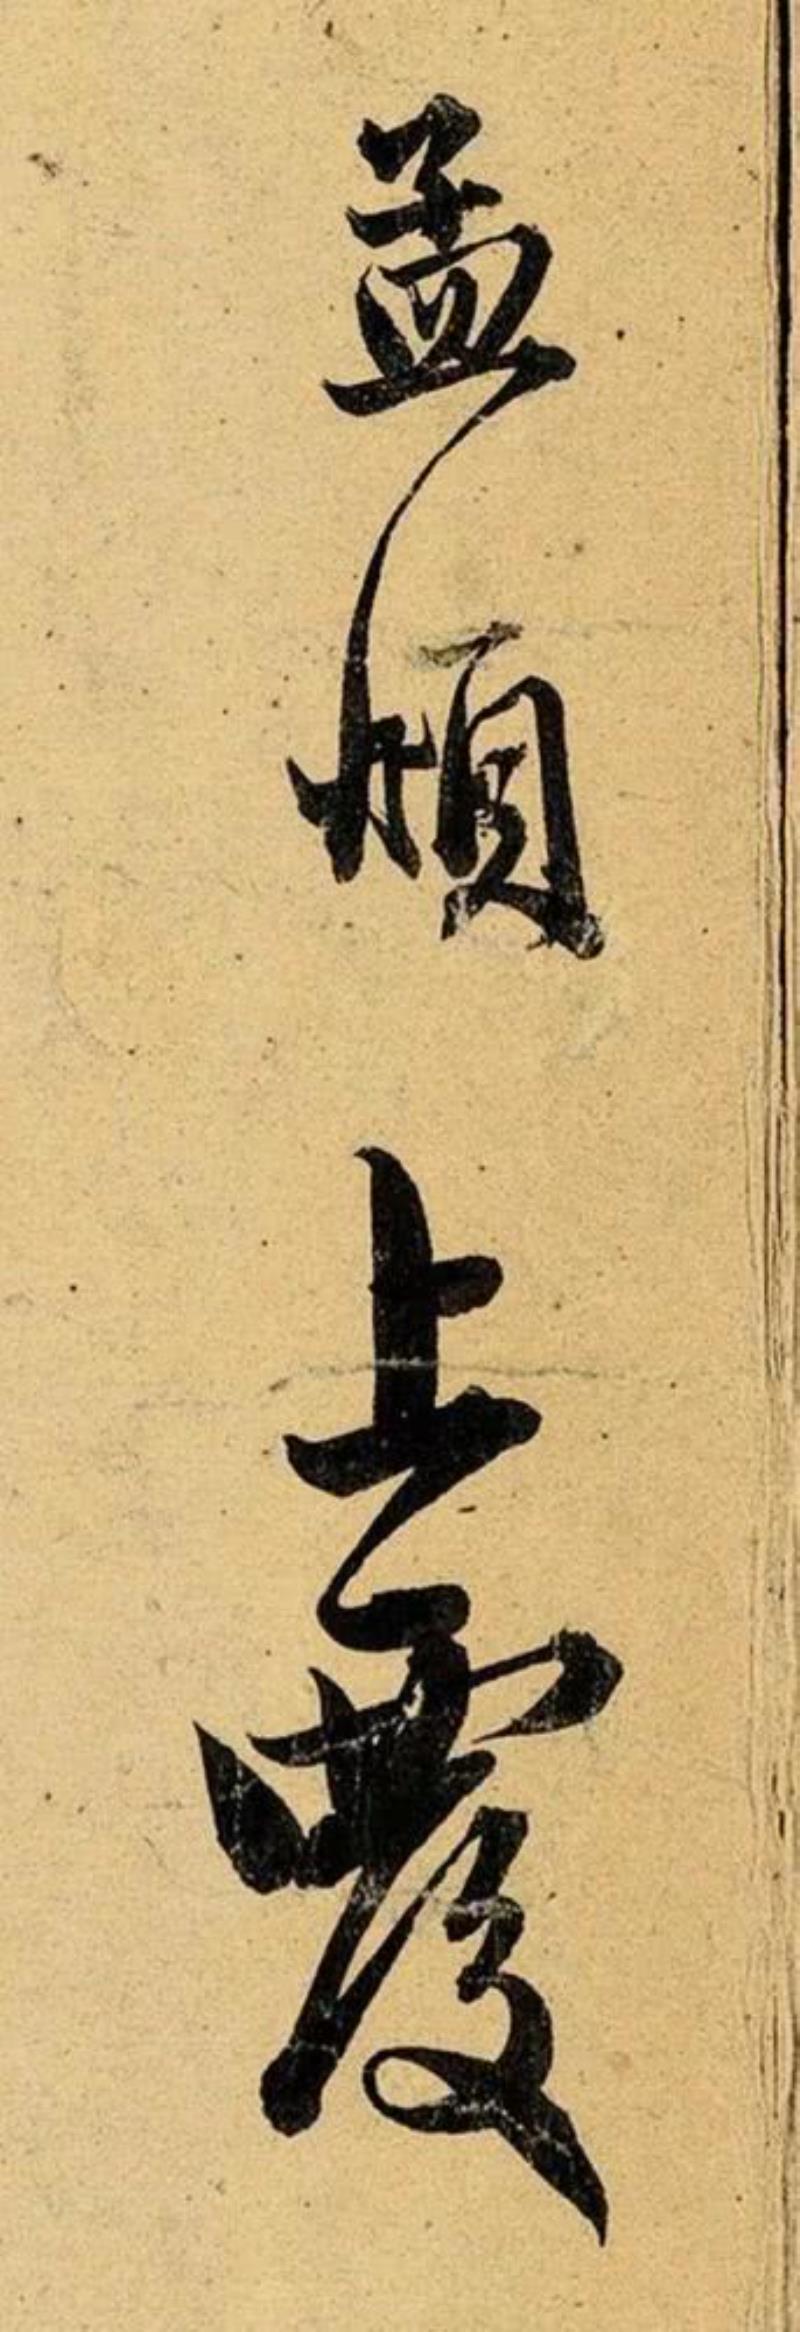 孟頫上覆